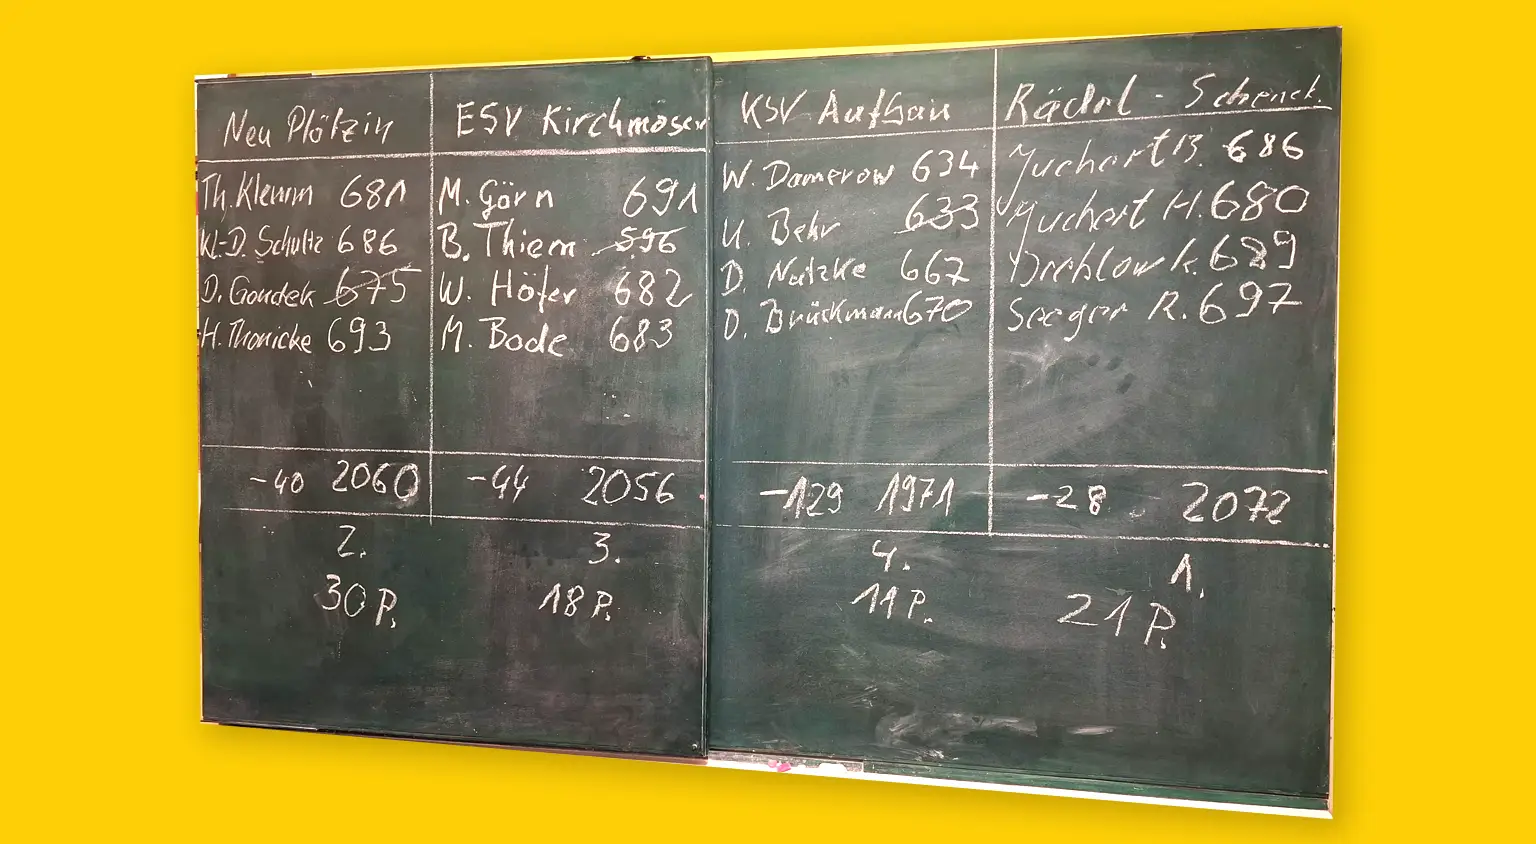 Neu Plötzin
Th. Klemm 681
Kl.-D. Schultz 686
D. Goudek 675
H. Thonicke 693
-40 2060
2.
30 P.
ESV Kirchmöser
M. Görn 691
B. Thiem 596
W. Höfer 682
M. Bode 683
-44 2056
3.
18 P.
KSV Aufbau
W. Damerow 634
U. Behr 633
D. Natzke 667
D. Brückmann 670
-129 1971
4.
11 P.
Rädel - Schenck
Juchert B. 686
Juchert H. 680
Drehlow K. 689
Seeger R. 697
-28 2072
1.
21 P.